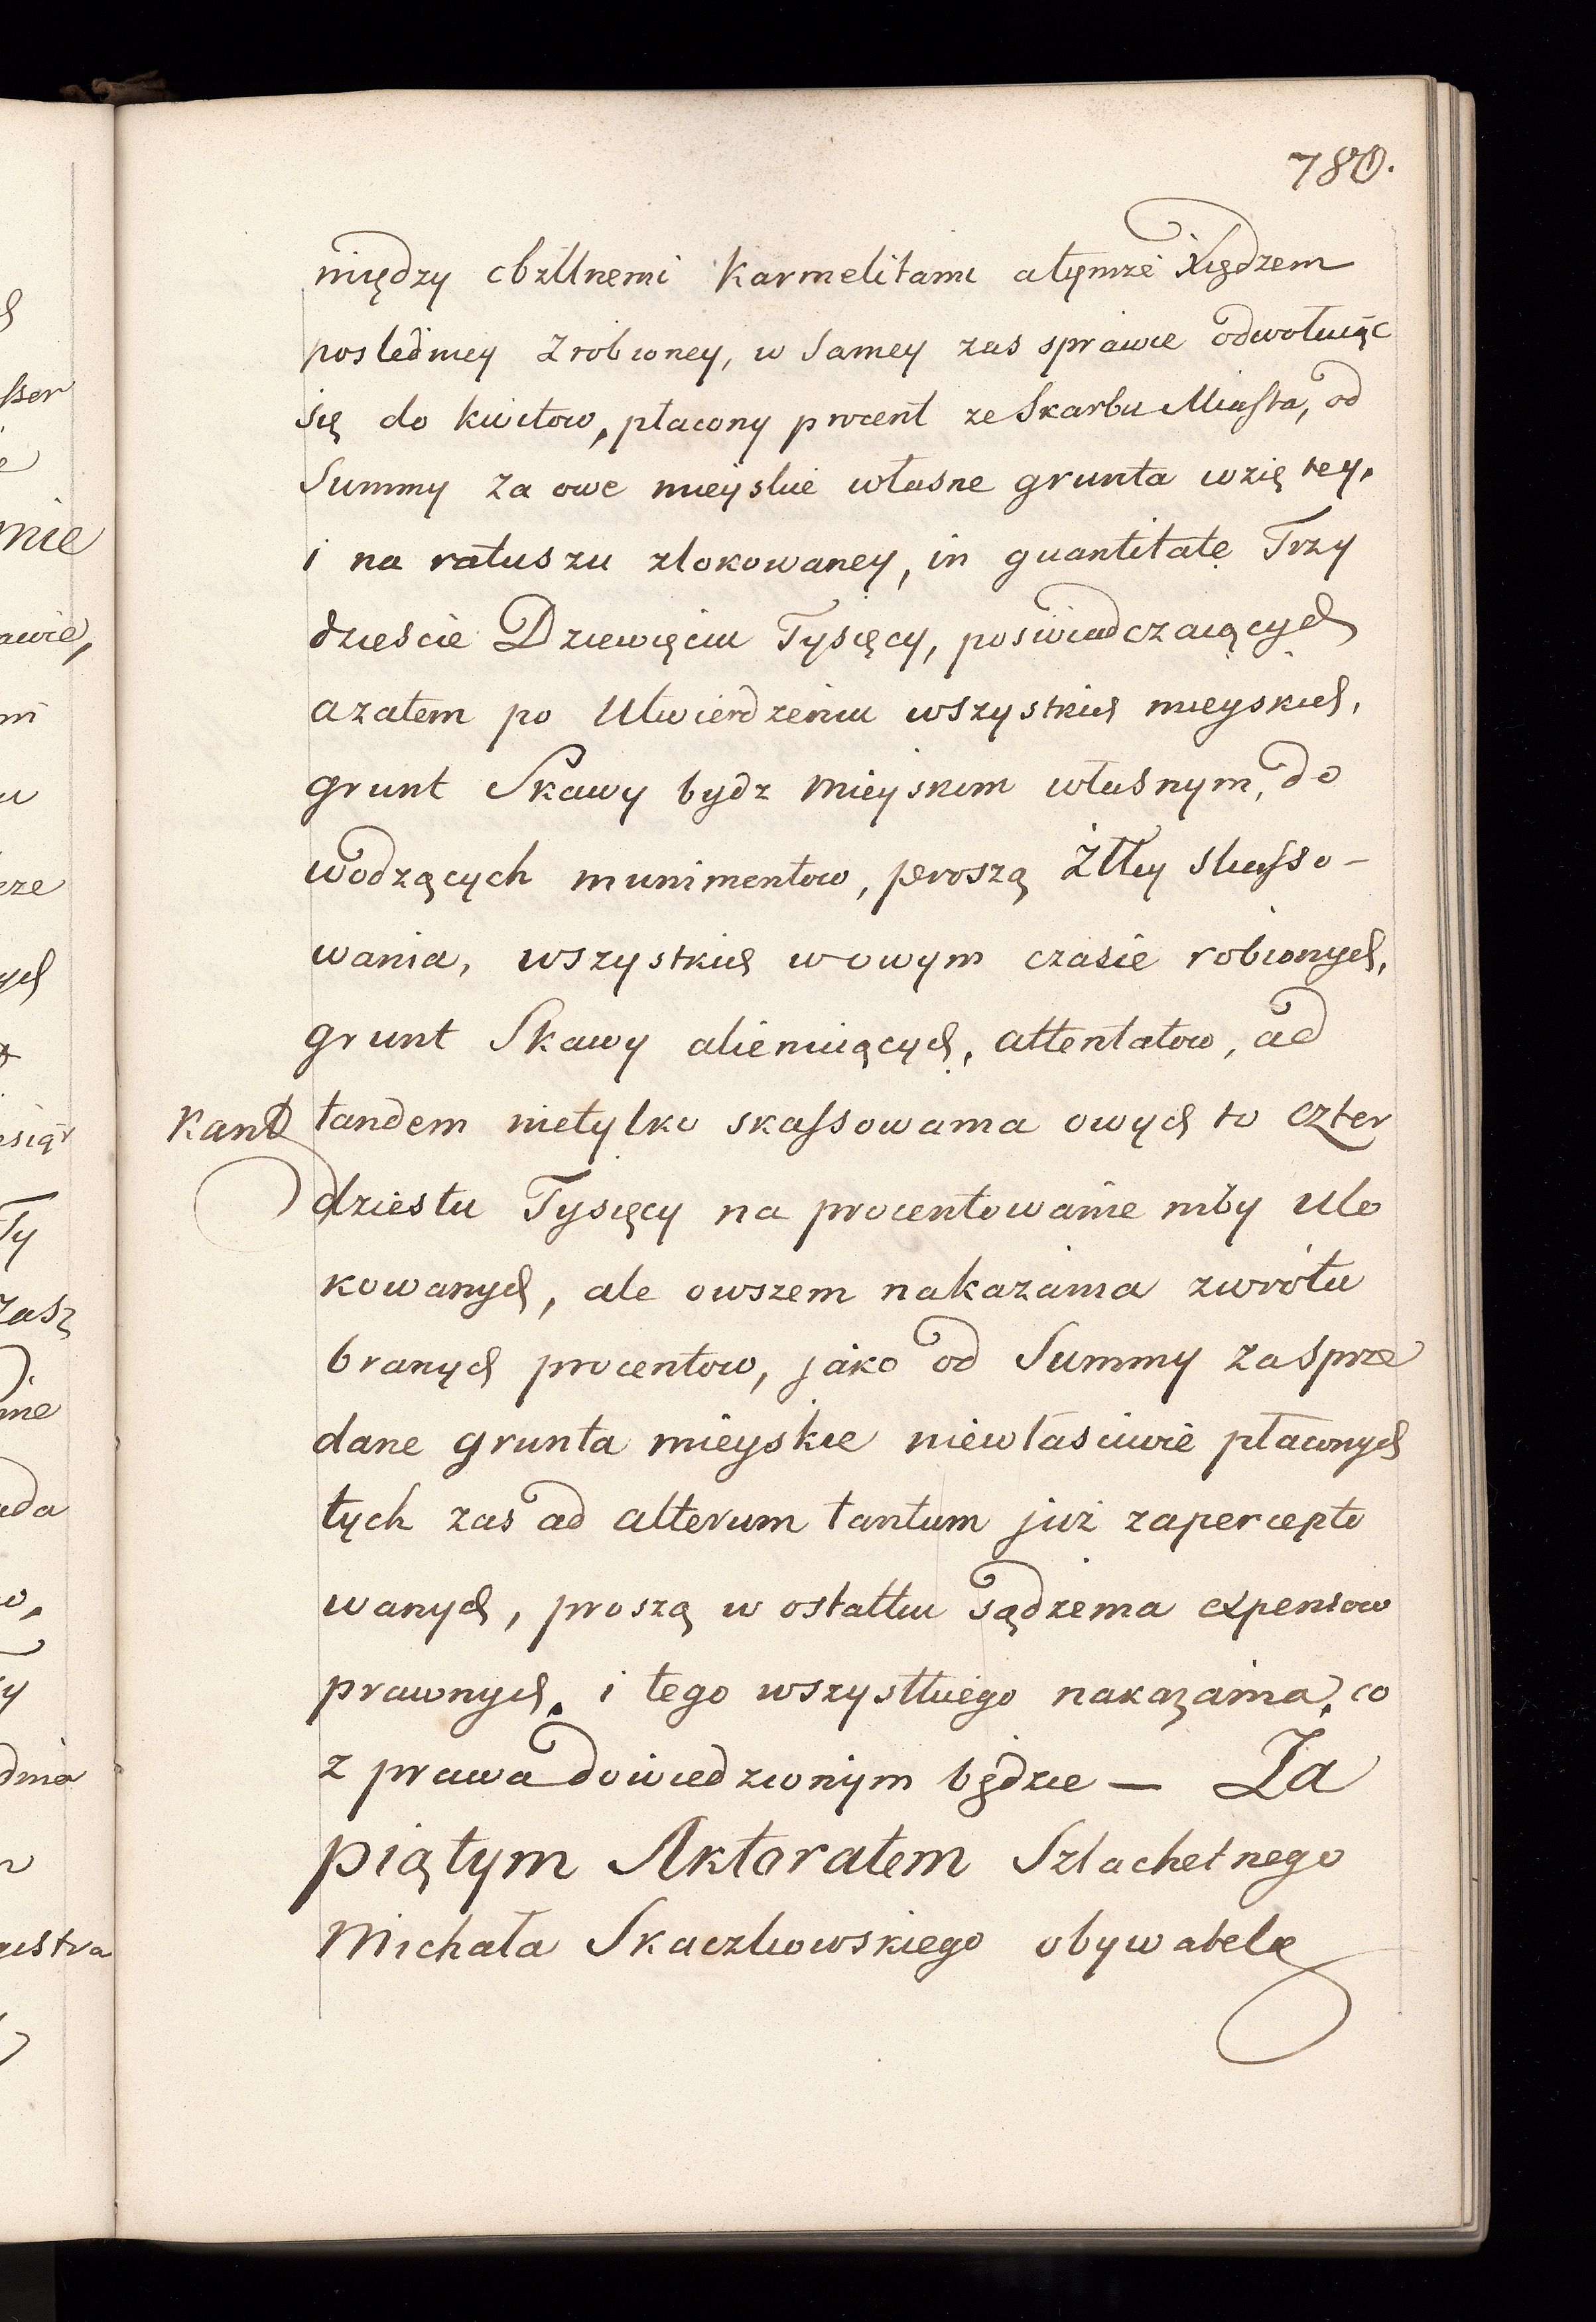 780.
między cbzllnemi Karmelitami atymże Xiędzem
posledniey zrobioney, w samey zas sprawie odwołuiąc
się do kwitow, płacony procent ze Skarbu Miasta, od
Summy za owe mieyskie własne grunta wzię tey,
i na ratuszu zlokowaney, in quantitate Trzy
dzieście Dziewięciu Tysięcy, poswiadczaiących
azatem po Utwierdzeniu wszystkich mieyskich,
grunt Skawy bydz mieyskim własnym, do
wodzących munimentow, proszą Żłły skasso-
wania, wszystkich wowym czasie robionych,
grunt Skawy alienuiących, attentatow, ad
Kant tandem nietylko skassowania owych to czter
dziestu Tysięcy na procentowanie niby ulo
kowanych, ale owszem nakazania zwrótu
branych procentow, jako od Summy za sprze
dane grunta mieyskie niewłasciwie płaconych
tych zas ad alterum tantum już zapercepto
wanych, proszą w ostatku sądzenia expensow
prawnych, i tego wszystkiego nakazania, co
z prawa dowiedzionym będzie — Za
piątym Aktoratem Szlachetnego
Michała Skaczkowskiego obywatela